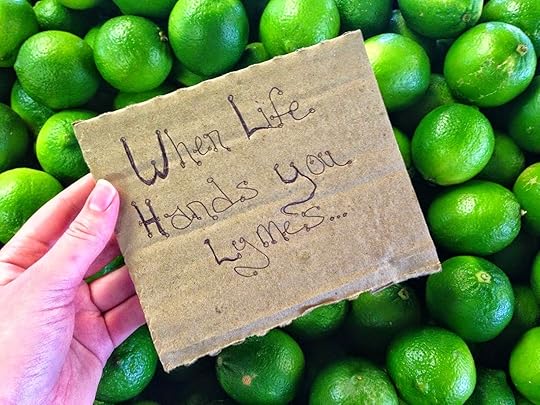 When Life
Hands You
Lymes...